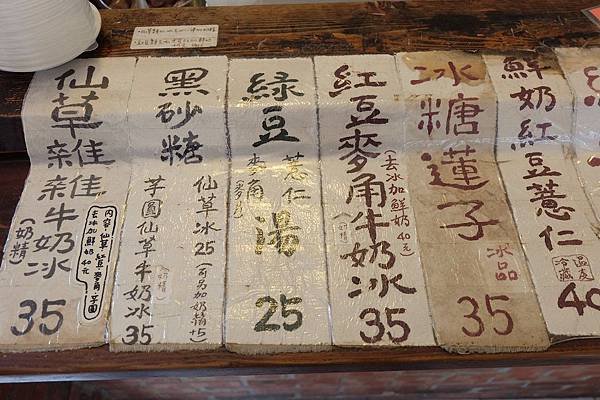 仙草雜雜牛奶冰
(奶精)
35
內容:仙草.紅豆.麥角.芋園
去冰加鮮奶40元
黑砂糖
仙草冰25(可另加奶精+5)
芋圓仙草牛奶冰
(奶精)
35
綠豆
薏仁
麥角
湯
25
紅豆麥角牛奶冰
(去冰加鮮奶40元)
(奶精)
35
冰糖蓮子
冰品
35
鮮奶紅豆薏仁
溫度
冷藏
40